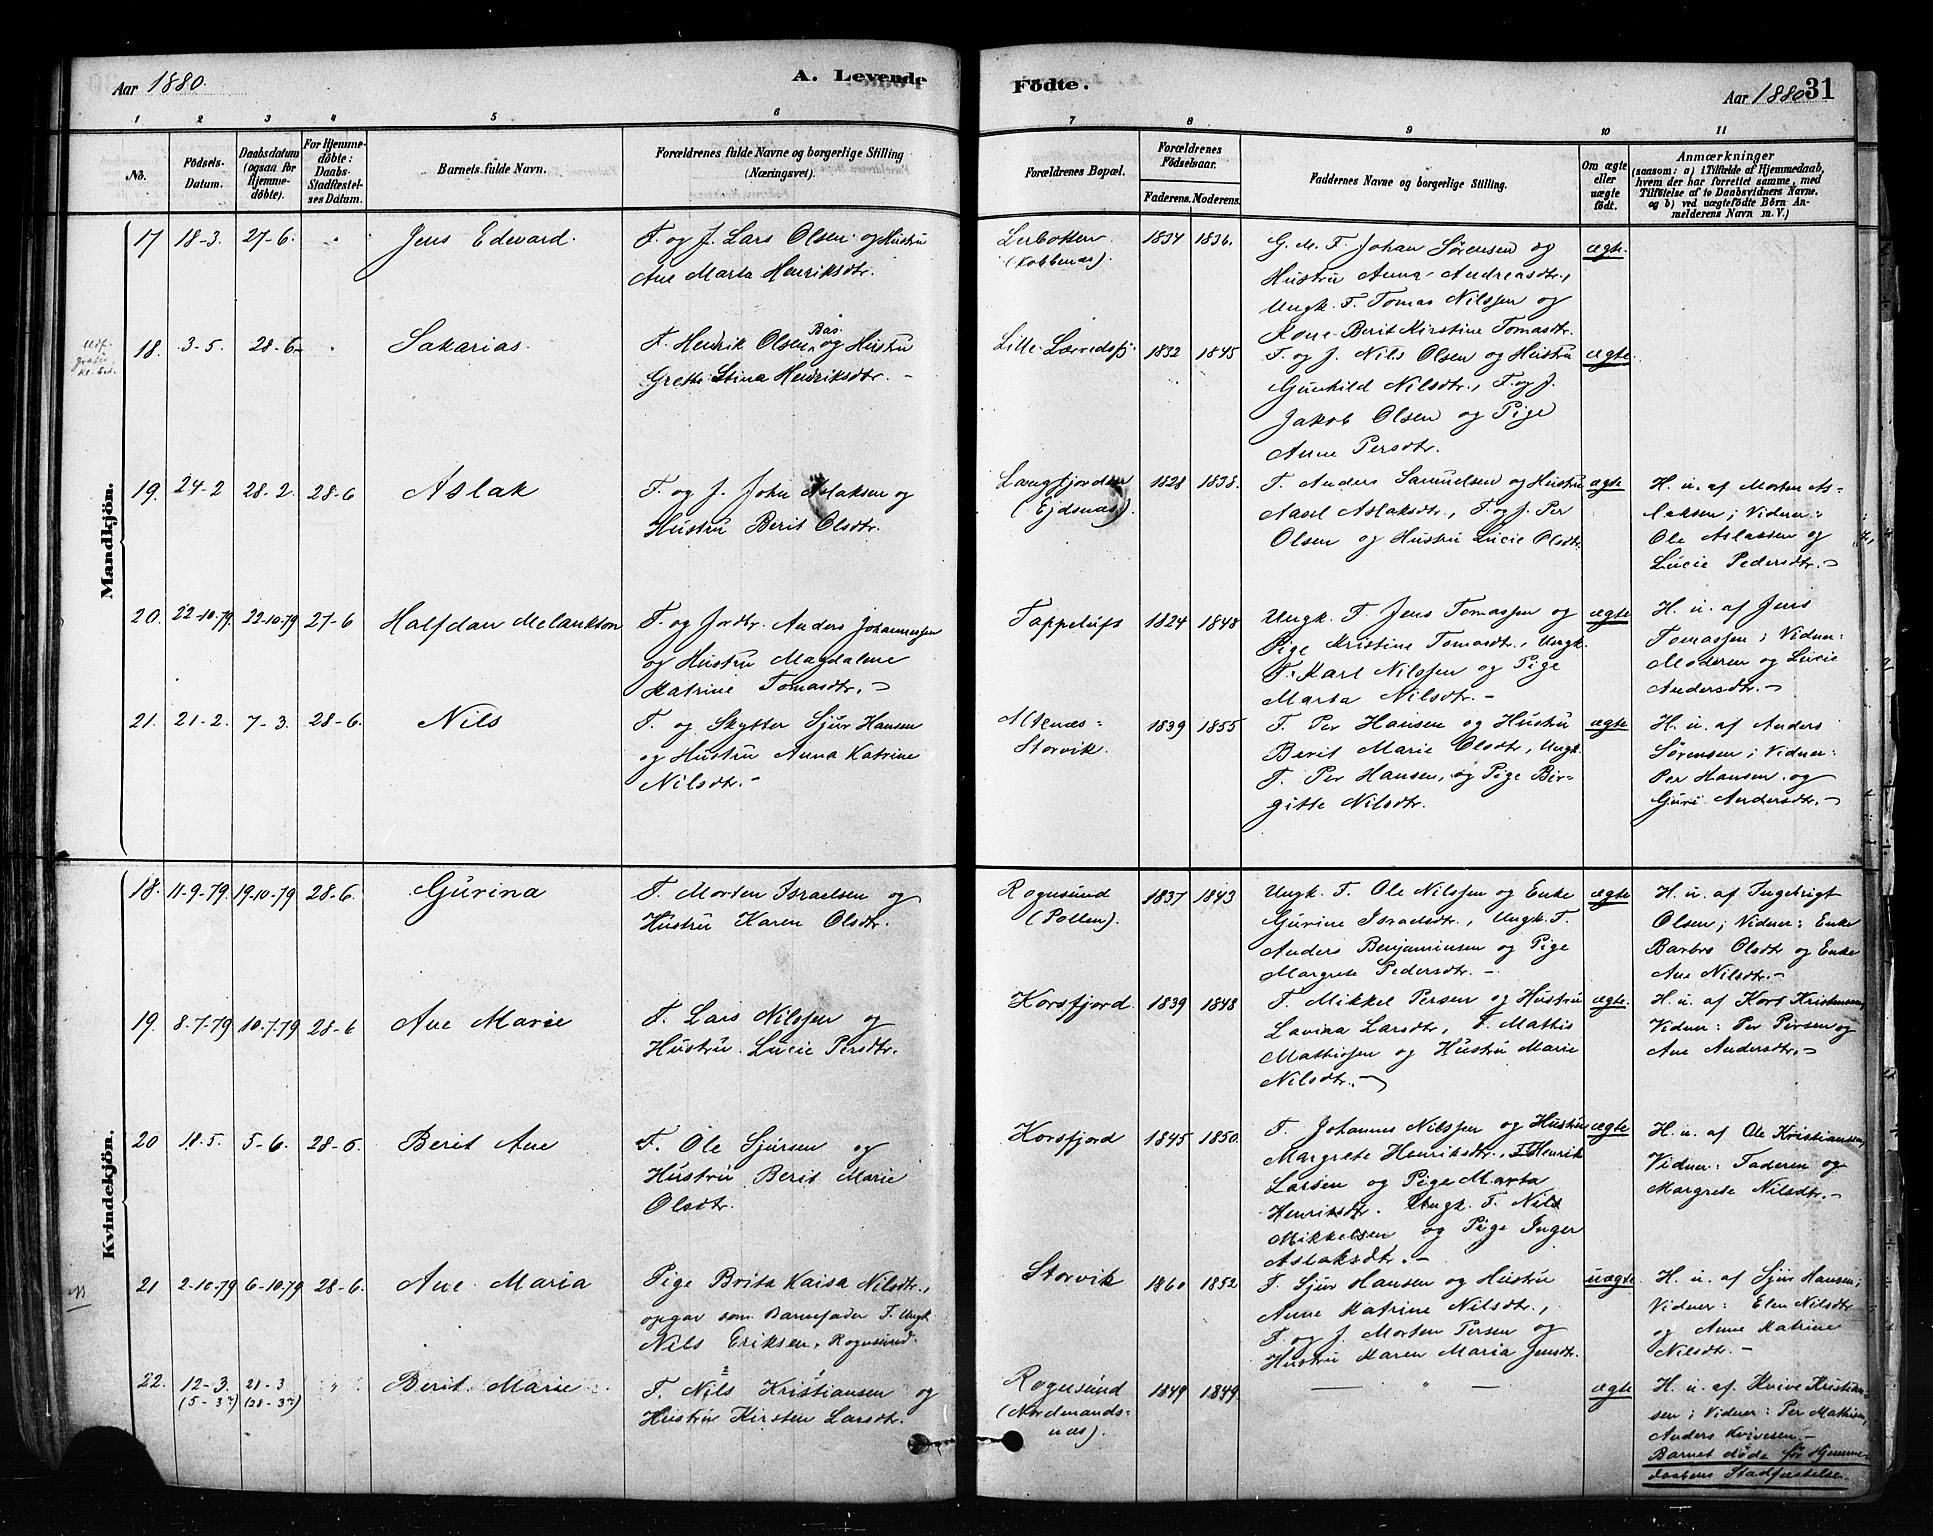 Aar 1880.
A. Levende
Födte.
Aar 1880 31
1 2 3 4 5 6 7 8 9 10 11
No.
Födsels-
Datum.
Daabsdatum
(ogsaa for
Hjemme-
döbte).
For Hjemme-
döbte:
Daabs-
Stadfæstel-
ses Datum.
Barnets fulde Navn.
Forældrenes fulde Navne og borgerlige Stilling
(Næringsvei).
Forældrenes Bopæl.
Forældrenes
Födselsaar.
Faderens. Moderens.
Faddernes Navne og borgerlige Stilling.
Om ægte
eller
uægte
födt.
Anmærkninger
(saasom: a) i Tilfælde af Hjemmedaab,
hvem der har forrettet samme, med
Tilföielse af to Daabsvidners Navne,
og b) ved uægtefödte Börn An-
melderens Navn m. V.)
Mandkjön.
17 18-3. 27-6. " Jens Edevard.
F. og J. Lars Olsen og Hustru
Ane Marta Henriksdtr.
Lerbotten
(Kobbenæs).
1834 1836.
G. M. F. Johan Sørensen og
Hustru Anna Andreasdtr.,
Ungk. F. Tomas Nilssen og
Kone Berit Kirstine Tomasdtr.
ægte.
18. 3-5. 28-6 " Sakarias.
F. Henrik Olsen Bas. og Hustru
Grethe Stina Henriksdtr. -
Lille Lærredsfj.
1832 1845
F. og J. Nils Olsen og Hustru
Gunhild Nilsdtr., F. og J.
Jakob Olsen og Pige
Anne Persdtr.
ægte
19. 24-2 28-2. 28-6 Aslak
F. og J. John Aslaksen og
Hustru Berit Olsdtr.
Langfjorden
(Ejdsnæs).
1828 1838.
F. Anders Samuelsen og Hustru
Aasel Aslaksdtr., F. og J. Per
Olsen og Hustru Lucie Olsdtr.
ægte
H. u. af Morten As-
laksen; Vidner:
Ole Aslaksen og
Lucie Pedersdtr. -
20. 22-10-79. 22-10-79 27-6 Halfdan Melankton
F. og Jordbr. Anders Johannessen
og Hustru Magdalene
Katrine Tomasdtr. -
Tappeluft
1824 1848
Ungk. F. Jens Tomassen og
Pige Kristine Tomasdtr., Ungk.
F. Karl Nilssen og Pige
Marta Nilsdtr. -
ægte
H. u. af Jens
Tomassen; Vidner:
Moderen og Lucie
Andersdtr. -
21. 21-2. 7-3. 28-6. Nils
F. og Skytter Sjur Hansen
og Hustru Anna Katrine
Nilsdtr. -
Altenæs-
Storvik.
1839 1855
F. Per Hansen og Hustru
Berit Marie Olsdtr., Ungk.
F. Per Hansen, og Pige Bir-
gitte Nilsdtr.
ægte
H. u. af Anders
Sørensen; Vidner:
Per Hansen og
Guri Andersdtr. -
Kvindekjön.
18. 11-9-79. 19-10-79 28-6. Gurina
F. Morten Israelsen og
Hustru Karen Olsdtr.
Rognsund
(Pollen).
1837 1843
Ungk. F. Ole Nilssen og Enke
Gurine Israelsdtr., Ungk. F.
Anders Benjaminsen og Pige
Margrete Pedersdtr. -
ægte
H. u. af Ingebrigt
Olsen; Vidner: Enke
Barbro Olsdtr og Enke
Ane Nilsdtr. -
19. 8-7-79 10-7-79 28-6 Ane Marie
F. Lars Nilssen og
Hustru Lucie Persdtr.
Korsfjord.
1839 1848
F. Mikkel Persen og Hustru
Lavina Larsdtr, F. Mattis
Mathissen og Hustru Marie
Nilsdtr. -
ægte.
H. u. af Kors Kristensen,
Vidner: Per Persen og
Ane Andersdtr. -
20 18.5. 5-6. 28-6. Berit Ane
F. Ole Sjursen og
Hustru Berit Marie
Olsdtr.
Korsfjord
1845 1850.
F. Johannes Nilssen og Hustru
Margrete Henriksdtr., F. Henrik
Larsen og Pige Marta
Henriksdtr. Ungk. F. Nils
Mikkelsen og Pige Inger
Aslaksdtr. -
ægte
H. u. af Ole Kristiansen,
Vidner: Faderen og
Margrete Nilsdtr. -
21 2-10-79 6-10-79 28-6. Ane Maria
Pige Brita Kaisa Nilsdtr.,
opgav som Barnefader F. Ungk.
Nils Eriksen, Rognsund.
Storvik
1860 1852
F. Sjur Hansen og Hustru
Anne Katrine Nilsdtr.,
F. og J. Morten Persen og
Hustru Karen Maria Jensdtr.
uægte
H. u. af Sjur Hansen;
Vidner: Elen Nilsdtr
og Anne Katrine
Nilsdtr. -
22. 12-3 21-3 " Berit Marie
F. Nils Kristiansen og
Hustru Kirsten Larsdtr.
Rognsund
(Nordmands-
næs).
1849 1849.
— " —
ægte
H. u. af Kvive Kristian-
sen; Vidner: Per Mathisen,
Anders Kvivesen. -
Barnet døde før Hjemme-
daabens Stadfæstelse.